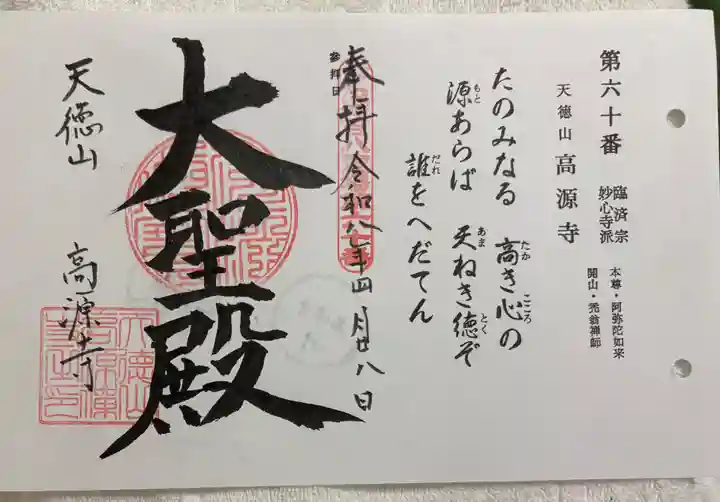 第六十番
臨済宗
妙心寺派
天徳山 高源寺
本尊・阿弥陀如来
開山・禿翁禅師
たのみなる 高き心の
たか こころ
源あらば 天ねき徳ぞ
もと あま とく
誰をへだてん
だれ
参拝日
奉拝 令和八年四月廿八日
大聖殿
天徳山 高源寺